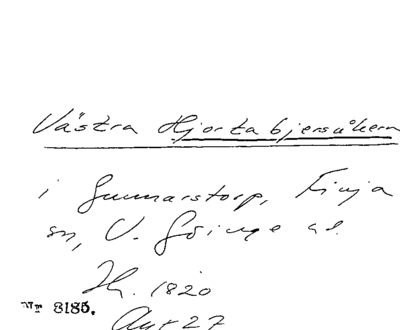 Västra Hjortabjersåkern
i Gunnarstorp, Finja
sn, V. Göinge hd.
Sk. 1820
Nr 8185.
Akt 27